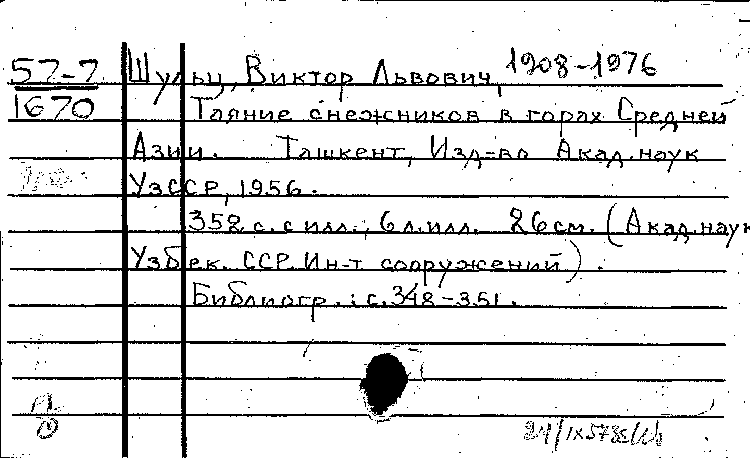 57-7 Шульц, Виктор Львович, 1908-1976
1670 Таяние снежников в горах Средней
Азии. Ташкент, Изд-во Акад. наук
УзССР, 1956.
352 с. с илл.; 6 л. илл. 26 см. (Акад. наук
Узбек. ССР. Ин-т сооружений).
Библиогр.: с. 348-351.